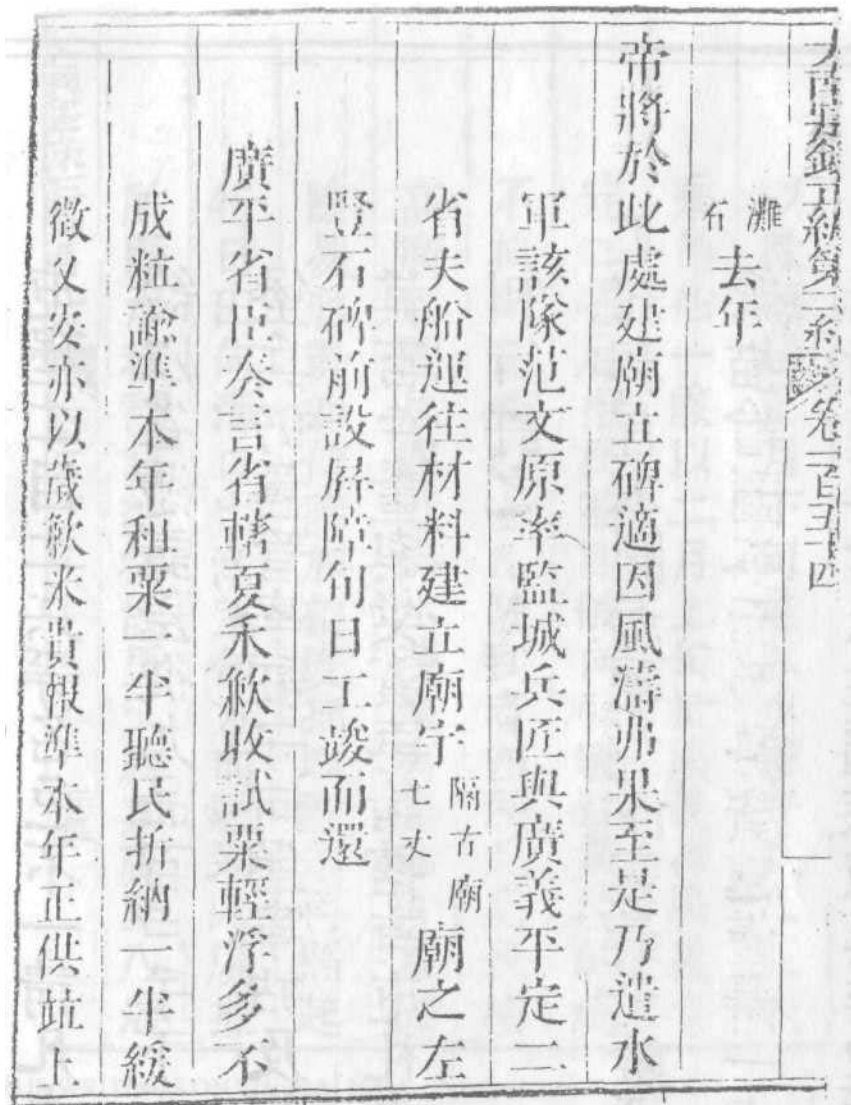 大南寔錄正編第二紀 卷一百五十四
灘石去年
帝將於此處建廟立碑適因風濤弗果至是乃遣水
軍該隊范文原率監城兵匠與廣義平定二
省夫船運往材料建立廟宇隔古廟七丈廟之左
豎石碑前設屏障旬日工竣而還
廣平省臣奏言省轄夏禾歉收試粟輕浮多不
成粒諭準本年租粟一半聽民折納一半緩
徵乂安亦以歲歉米貴報準本年正供䟽上